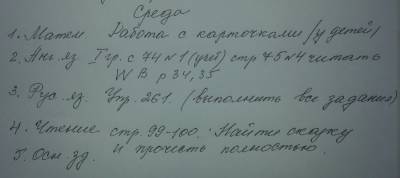 Среда
1. Матем Работа с карточками (у детей)
2. Анг. яз. I гр. с 74 №1 (учеб) стр 75 №4 читать
WB p 34, 35
3. Рус. яз. Упр. 261. (выполнить все задания)
4. Чтение стр. 99-100. Найти сказку
и прочесть полностью.
5. Осн. зд.